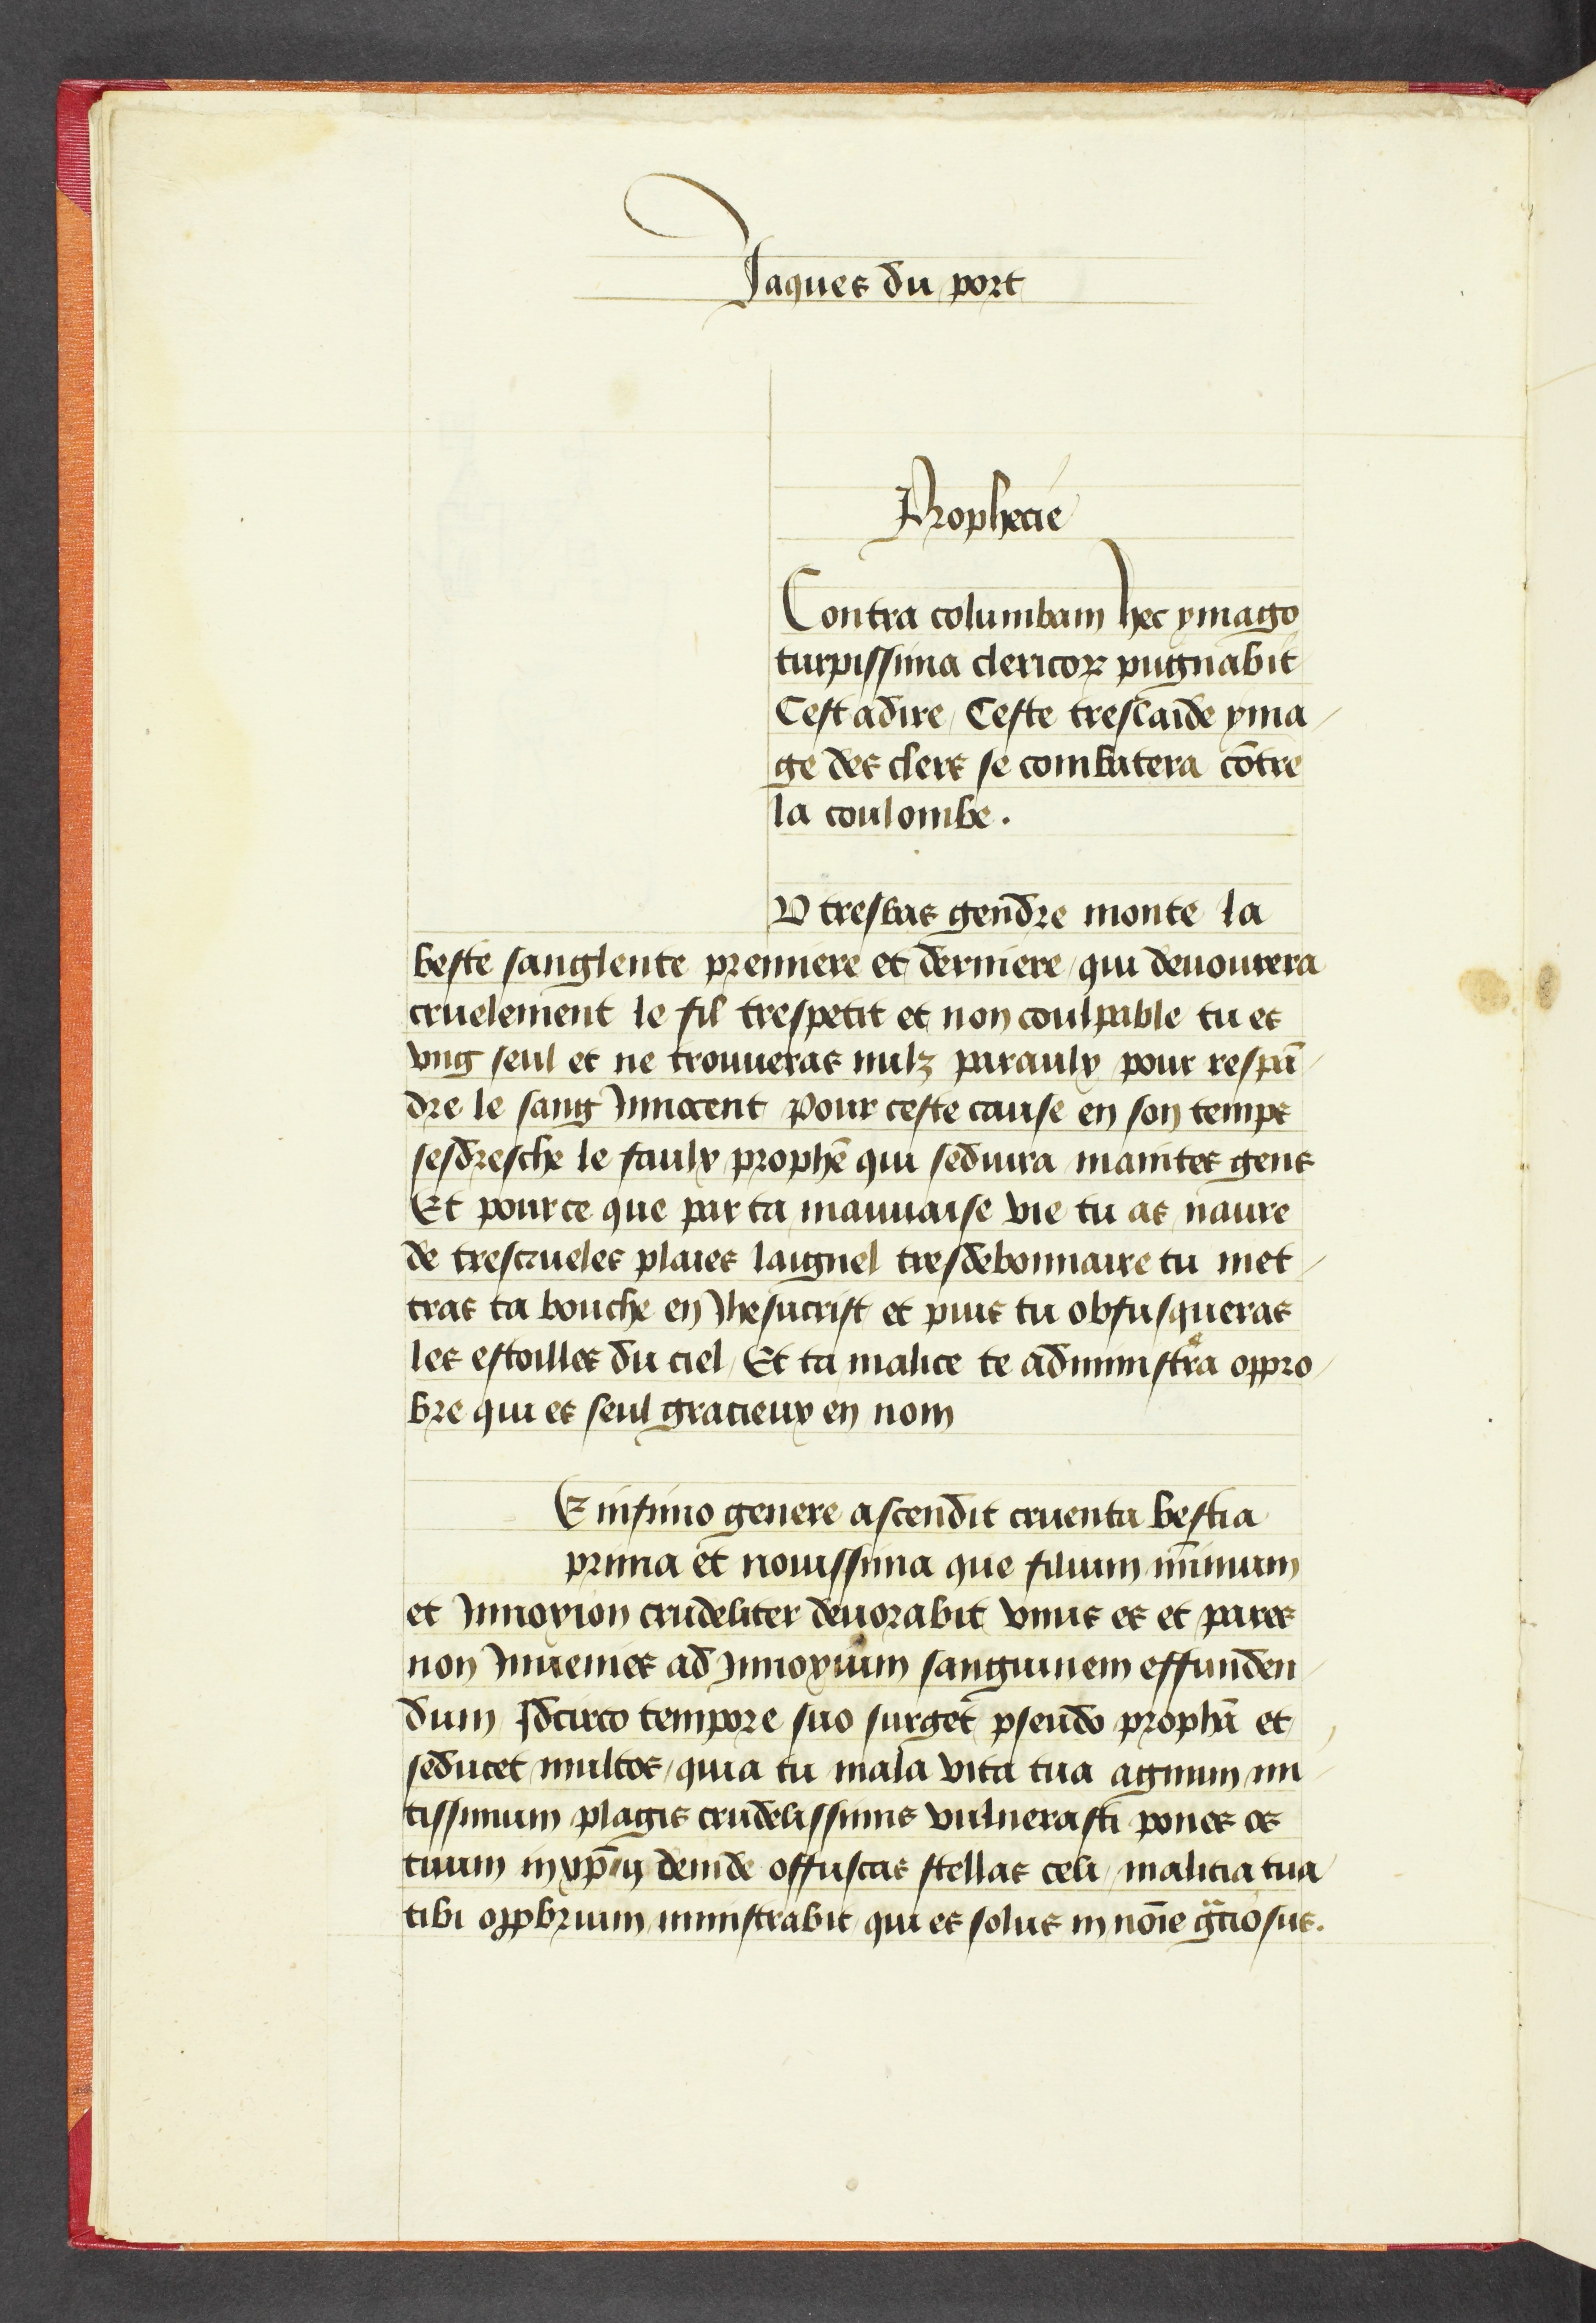 Jaques du port
Prophecie
Contra columbam hec ymago
turpissima clericoꝝ pugnabit
Cest adire / Ceste treslaide yma/
ge des clers se combatera cōtre
la coulombe .
D tresbas gendre monte la
beste sanglente premiere et derniere / qui deuourera
cruelement le fil trespetit et non coulpable tu es
vng seul et ne trouueras nulz paraulx pour respā/
dre le sang Innocent pour ceste cause en son temps
sesdresche le faulx prophē qui seduira maintes gens
Et pource que par ta mauuaise vie tu as naure
de trescrueles plaies laignel tresdebonnaire tu met/
tras ta bouche en Jhesucrist et puis tu obfusqueras
les estoilles du ciel / Et ta malice te administrͤa oppro/
bre qui es seul gracieux en nom
E infimo genere ascendit cruenta bestia
prima et nouissima que filium mīmum
et Innoxion crudeliter deuorabit vnus es et pares
non Inuenies ad Innoxium sanguinem effunden/
dum Idcirco tempore suo surget pseudo prophā et
seducet multos / quia tu mala vita tua agnum mi/
tissimum plagis crudelissimis vulnerasti pones os
tuum in xp̄m deinde offuscas stellas celi / malicia tua
tibi oppbrium ministrabit qui es solus in nōie gͣciosus.